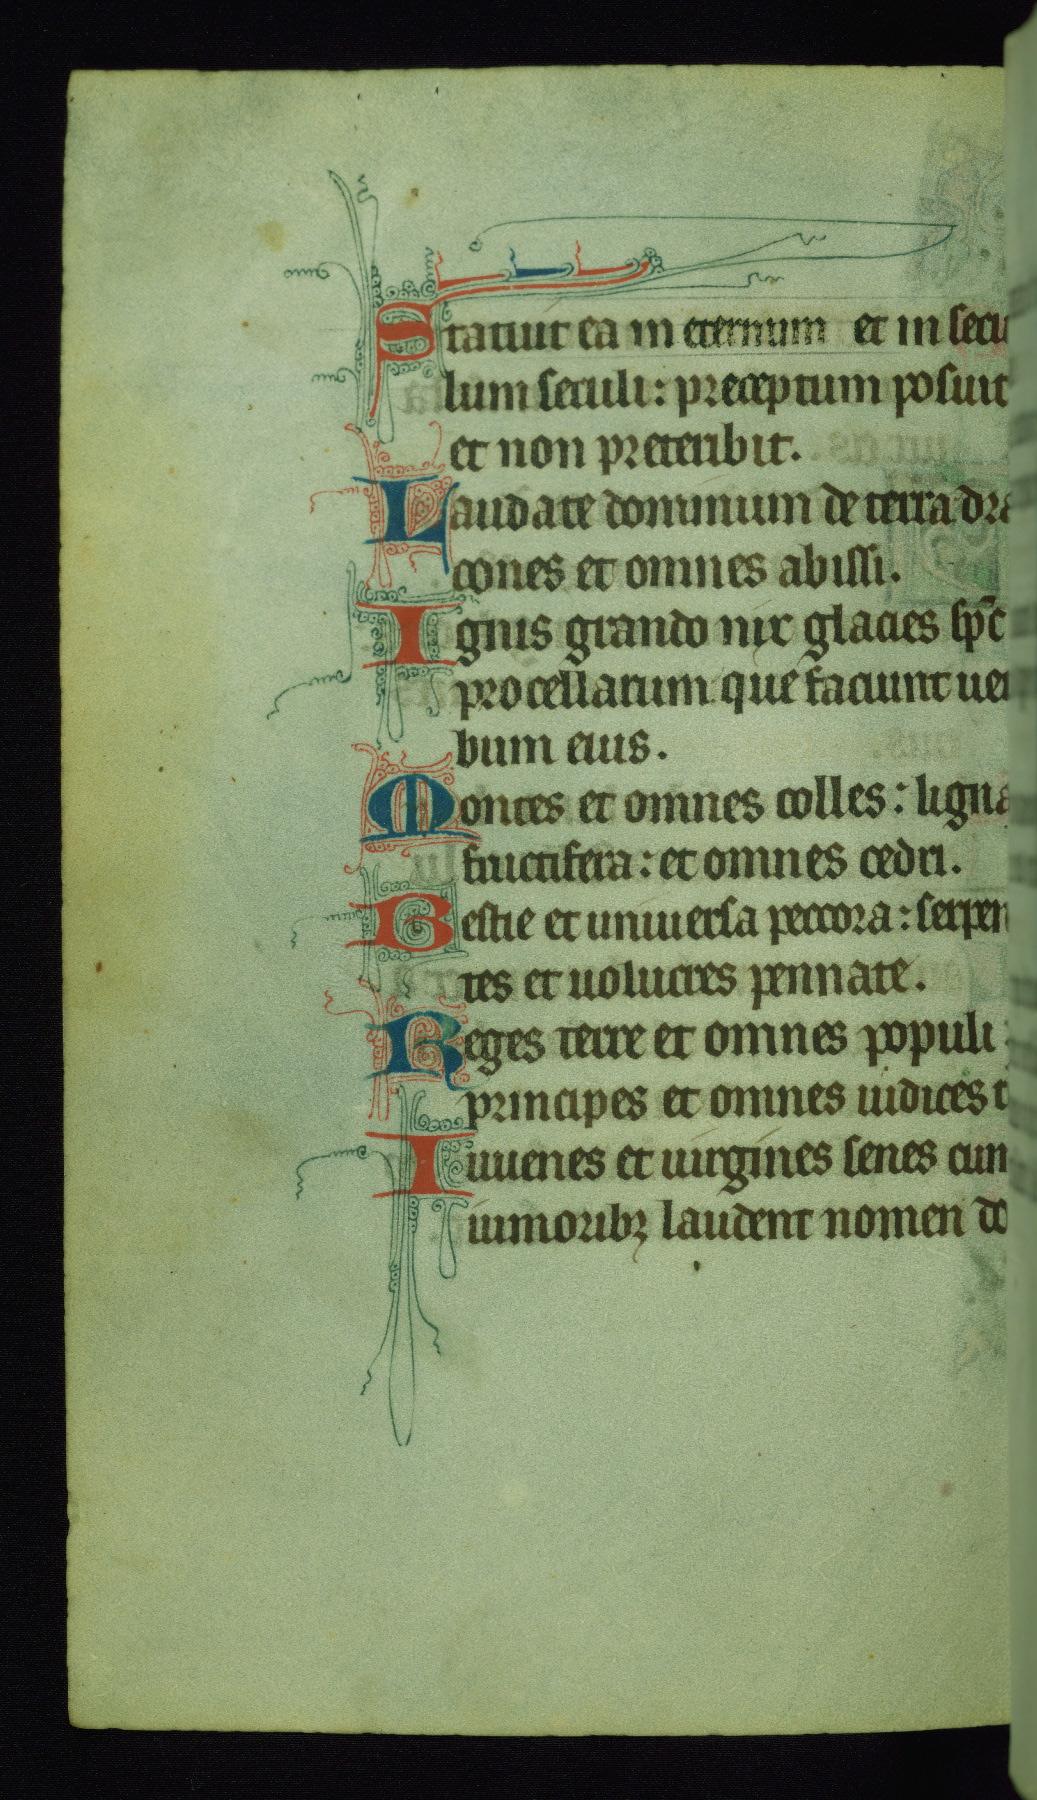 Statuit ea in eternum et in secu
lum seculi: preceptum posuit
et non preteribit.
Laudate dominum de terra dra
cones et omnes abissi.
Ignis grando nix glacies sp̄c
procellarum que faciunt uer
bum eius.
Montes et omnes colles: ligna
fructifera: et omnes cedri.
Bestie et uniuersa peccora: serpen
tes et uolucres pennate.
Reges terre et omnes populi
principes et omnes iudices t
Iuuenes et uirgines senes cum
iunioribꝫ laudent nomen do